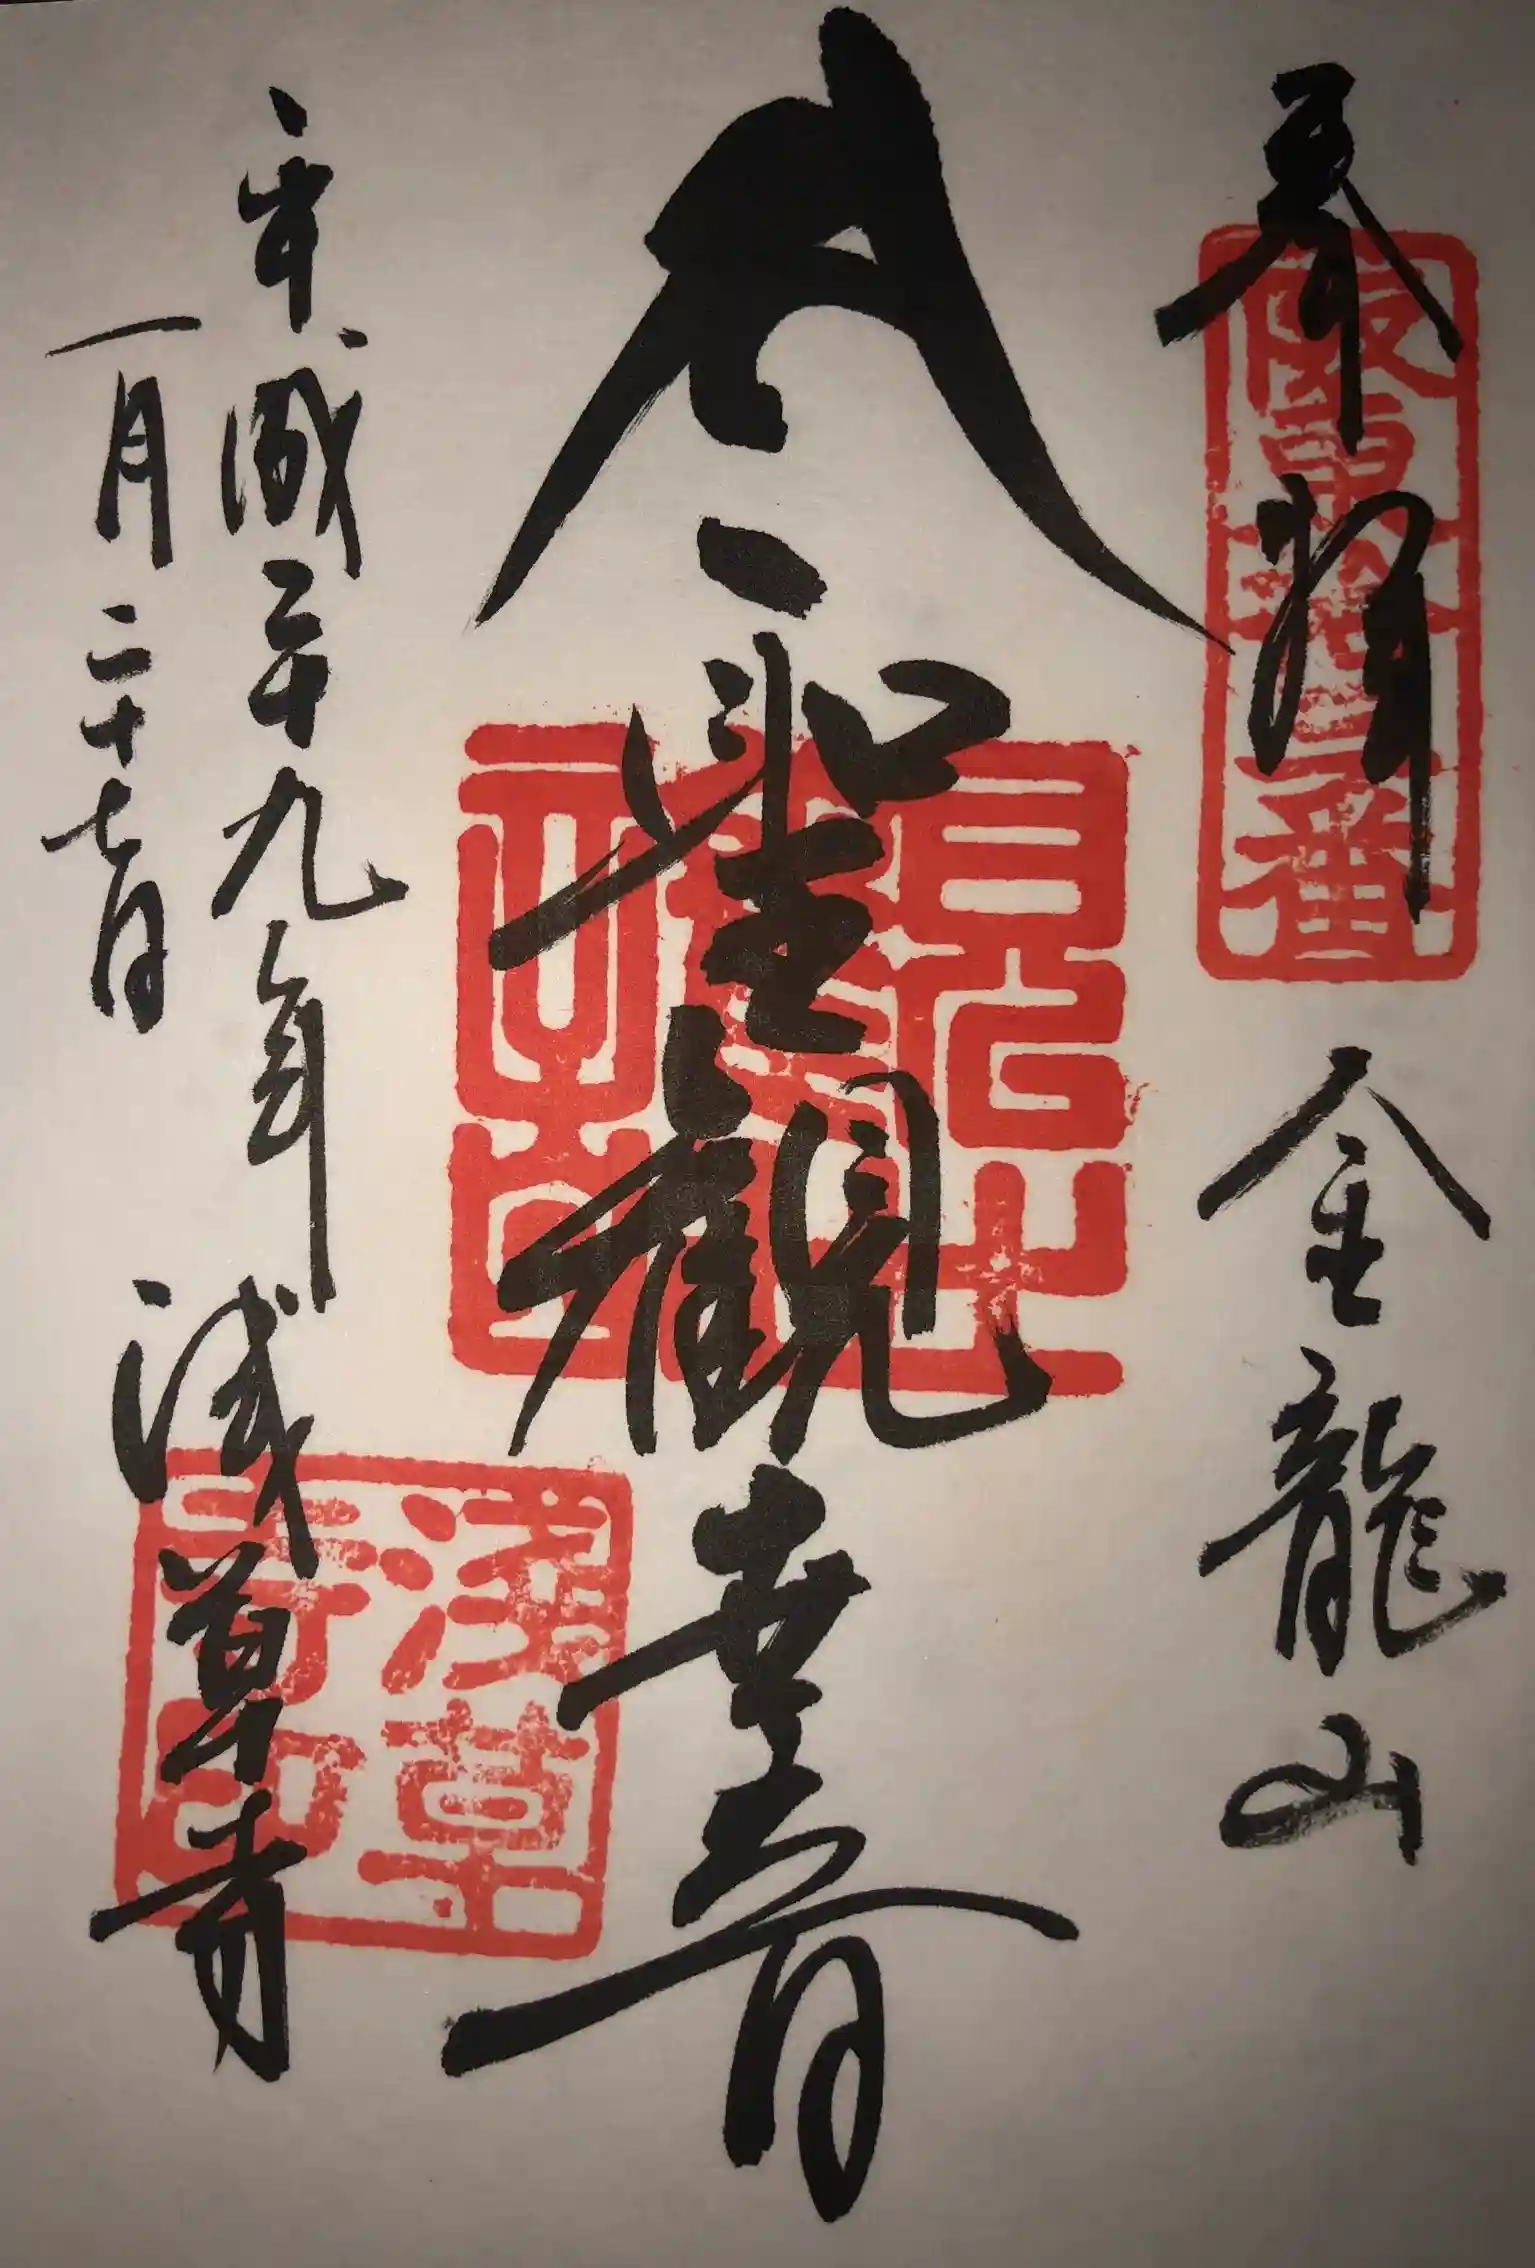 奉拝 金龍山
阪東拾三番
聖観世音
平成二十九年
一月二十七日
浅草寺
淺草
寺印